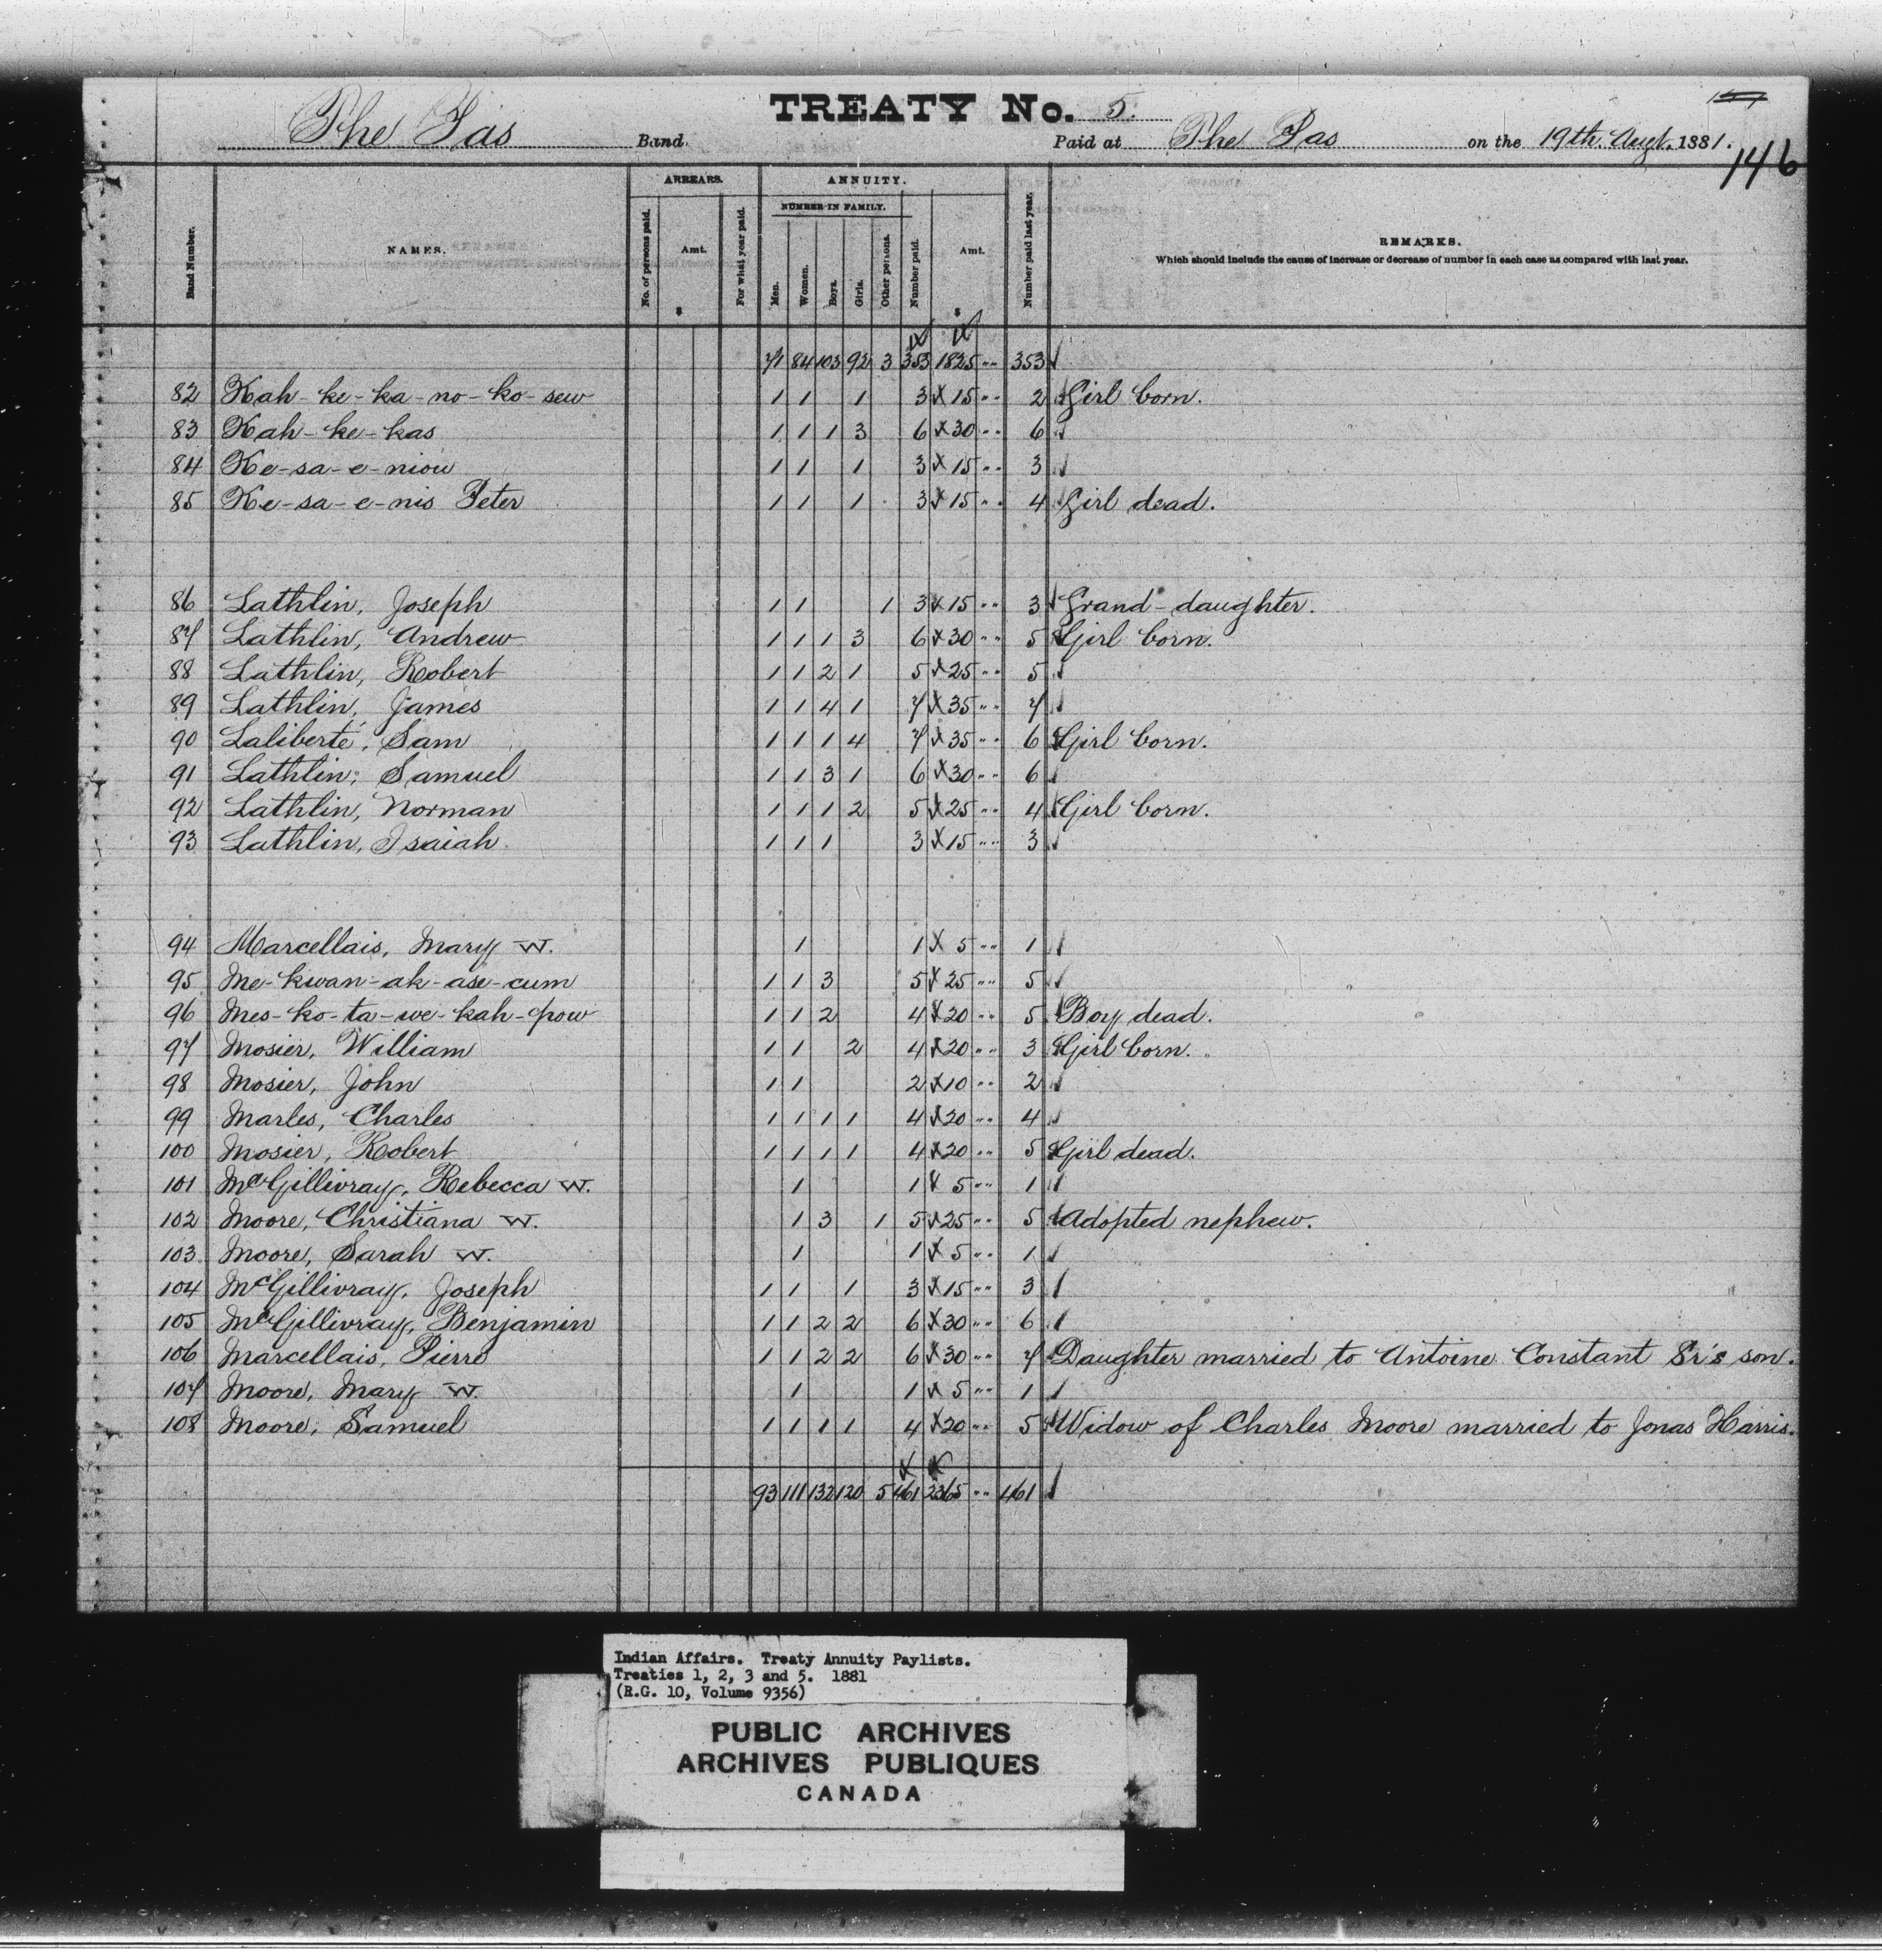 TREATY No. 5.
The Pas Band. Paid at The Pas on the 19th. Augt. 1881.
146
ARREARS. ANNUITY.
NUMBER IN FAMILY.
Band Number. NAMES. No. of persons paid. Amt. For what year paid. Men. Women. Boys. Girls. Other persons. Number paid. Amt. Number paid last year. REMARKS.
Which should include the cause of increase or decrease of number in each case as compared with last year.
$ $
71 84 103 92 3 353 1825 " 353
82 Kah-ke-ka-no-ko-sew 1 1 1 3 15 " 2 Girl born.
83 Kah-ke-kas 1 1 1 3 6 30 " 6
84 Ke-sa-e-niow 1 1 1 3 15 " 3
85 Ke-sa-e-nis Peter 1 1 1 3 15 " 4 Girl dead.
86 Lathlin, Joseph 1 1 1 3 15 " 3 Grand-daughter.
87 Lathlin, Andrew 1 1 1 3 6 30 " 5 Girl born.
88 Lathlin, Robert 1 1 2 1 5 25 " 5
89 Lathlin, James 1 1 4 1 7 35 " 7
90 Laliberté, Sam 1 1 1 4 7 35 " 6 Girl born.
91 Lathlin, Samuel 1 1 3 1 6 30 " 6
92 Lathlin, Norman 1 1 1 2 5 25 " 4 Girl born.
93 Lathlin, Isaiah 1 1 1 3 15 " 3
94 Marcellais, Mary W. 1 1 5 " 1
95 Me-kwan-ak-ase-cum 1 1 3 5 25 " 5
96 Mes-ko-ta-we-kah-pow 1 1 2 4 20 " 5 Boy dead.
97 Mosier, William 1 1 2 4 20 " 3 Girl born.
98 Mosier, John 1 1 2 10 " 2
99 Marles, Charles 1 1 1 1 4 20 " 4
100 Mosier, Robert 1 1 1 1 4 20 " 5 Girl dead.
101 McGillivray, Rebecca W. 1 1 5 " 1
102 Moore, Christiana W. 1 3 1 5 25 " 5 Adopted nephew.
103 Moore, Sarah W. 1 1 5 " 1
104 McGillivray, Joseph 1 1 1 3 15 " 3
105 McGillivray, Benjamin 1 1 2 2 6 30 " 6
106 Marcellais, Pierre 1 1 2 2 6 30 " 7 Daughter married to Antoine Constant Sr's son.
107 Moore, Mary W. 1 1 5 " 1
108 Moore, Samuel 1 1 1 1 4 20 " 5 Widow of Charles Moore married to Jonas Harris.
93 111 132 120 5 461 2365 " 461
Indian Affairs. Treaty Annuity Paylists.
Treaties 1, 2, 3 and 5. 1881
(R.G. 10, Volume 9356)
PUBLIC ARCHIVES
ARCHIVES PUBLIQUES
CANADA